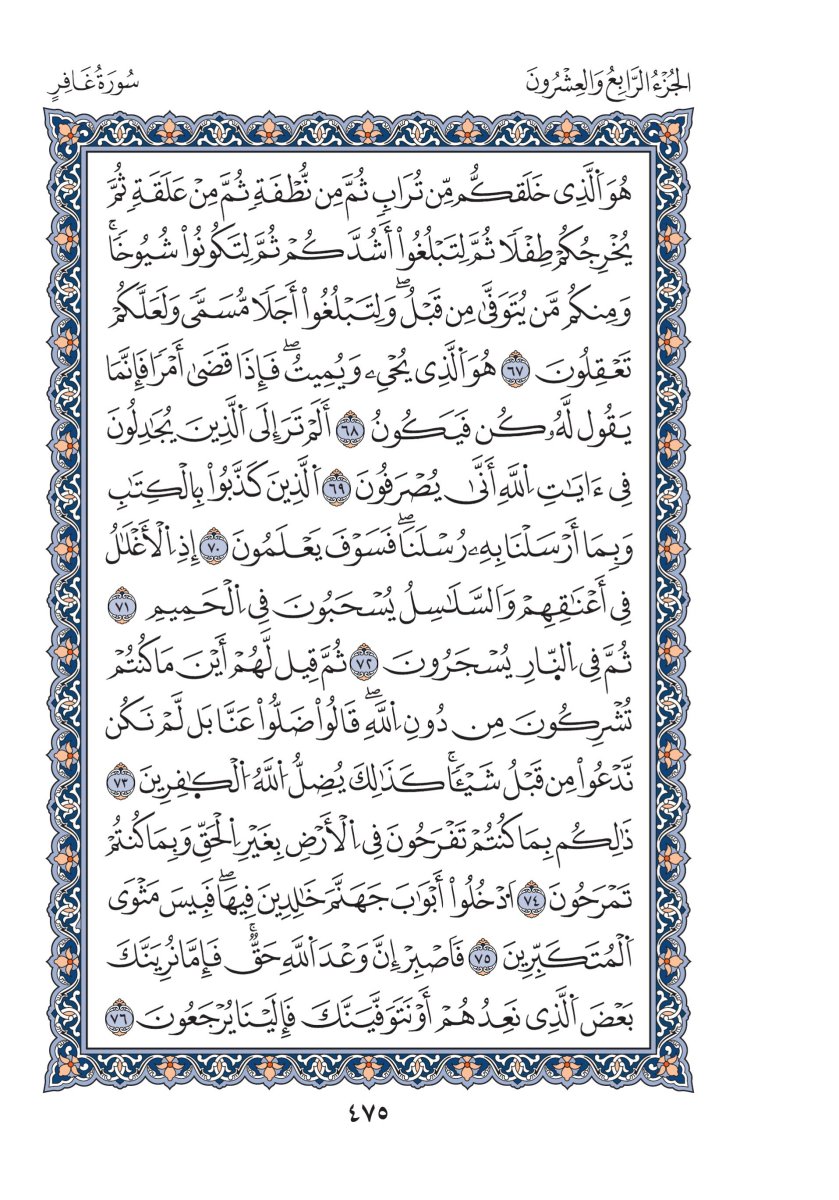 الجُزْءُ الرَّابِعُ وَالعِشْرُونَ سُورَةُ غَافِرٍ
هُوَ ٱلَّذِى خَلَقَكُم مِّن تُرَابٖ ثُمَّ مِن نُّطْفَةٖ ثُمَّ مِنْ عَلَقَةٖ ثُمَّ
يُخْرِجُكُمْ طِفْلٗا ثُمَّ لِتَبْلُغُوٓاْ أَشُدَّكُمْ ثُمَّ لِتَكُونُواْ شُيُوخٗاۚ
وَمِنكُم مَّن يُتَوَفَّىٰ مِن قَبْلُۖ وَلِتَبْلُغُوٓاْ أَجَلٗا مُّسَمّٗى وَلَعَلَّكُمْ
تَعْقِلُونَ ٦٧ هُوَ ٱلَّذِى يُحْىِۦ وَيُمِيتُۖ فَإِذَا قَضَىٰٓ أَمْرٗا فَإِنَّمَا
يَقُول لَّهُۥ كُن فَيَكُونُ ٦٨ أَلَمْ تَرَ إِلَى ٱلَّذِينَ يُجَٰدِلُونَ
فِىٓ ءَايَٰتِ ٱللَّهِ أَنَّىٰ يُصْرَفُونَ ٦٩ ٱلَّذِينَ كَذَّبُواْ بِٱلْكِتَٰبِ
وَبِمَآ أَرْسَلْنَا بِهِۦ رُسْلَنَاۖ فَسَوْفَ يَعْلَمُونَ ٧٠ إِذِ ٱلْأَغْلَٰلُ
فِىٓ أَعْنَٰقِهِمْ وَٱلسَّلَٰسِلُ يُسْحَبُونَ فِى ٱلْحَمِيمِ ٧١
ثُمَّ فِى ٱلنّارِ يُسْجَرُونَ ٧٢ ثُمَّ قِيل لَّهُمْ أَيْنَ مَا كُنتُمْ
تُشْرِكُونَ مِن دُونِ ٱللَّهِۖ قَالُواْ ضَلُّواْ عَنَّا بَل لَّمْ نَكُن
نَّدْعُواْ مِن قَبْلُ شَيْـٔٗاۚ كَذَٰلِكَ يُضِلُّ ٱللَّهُ ٱلْكٰفِرِينَ ٧٣
ذَٰلِكُم بِمَا كُنتُمْ تَفْرَحُونَ فِى ٱلْأَرْضِ بِغَيْرِ ٱلْحَقِّ وَبِمَا كُنتُمْ
تَمْرَحُونَ ٧٤ ٱدْخُلُوٓاْ أَبْوَٰبَ جَهَنَّمَ خَٰلِدِينَ فِيهَاۖ فَبِيسَ مَثْوَى
ٱلْمُتَكَبِّرِينَ ٧٥ فَٱصْبِرْ إِنَّ وَعْدَ ٱللَّهِ حَقّٞۚ فَإِمَّا نُرِيَنَّكَ
بَعْضَ ٱلَّذِى نَعِدُهُمْ أَوْ نَتَوَفَّيَنَّكَ فَإِلَيْنَا يُرْجَعُونَ ٧٦
٤٧٥